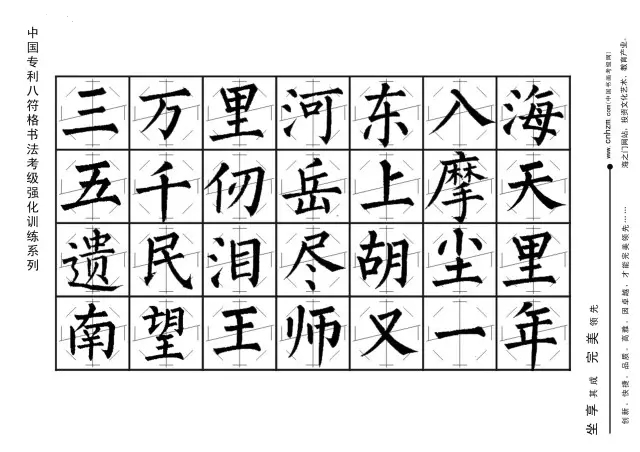 中国专利八符格书法考级强化训练系列
三万里河东八海
五千仞岳上摩天
遗民泪尽胡尘里
南望王师又一年
坐享其成 完美领先
www.cnhzm.com(中国书画考级网)
海之门网站，投资文化艺术、教育产业。
创新、快捷、品质、高雅、因卓越，才能完美领先……